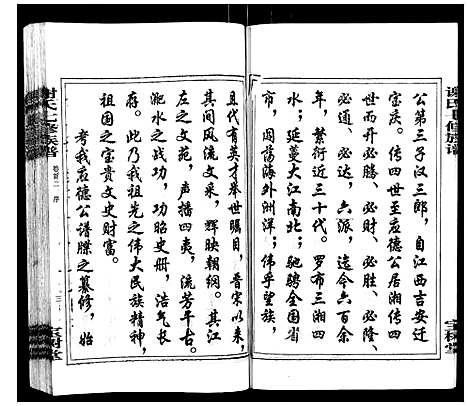 谢氏七修族谱
宝树堂
公第三子汉三郎，自江西吉安迁
宝庆。传四世至应德公居湘传四
世而开必腾、必财、必胜、必隆、
必通、必达，六派，迄今六百余
年，繁衍近三十代。罗布三湘四
水；延蔓大江南北；驰骋全国省
市，闯荡海外洲洋；伟乎望族，
且代有英才举世瞩目，晋宋以来，
其间风流文采，辉映朝纲。其江
左之文苑，声播四夷，流芳千古。
淝水之战功，功昭史册，浩气长
存。此乃我祖先之伟大民族精神，
祖国之宝贵文史财富。
考我应德公谱牒之纂修，始
谢氏七修族谱
卷首二 序
宝树堂